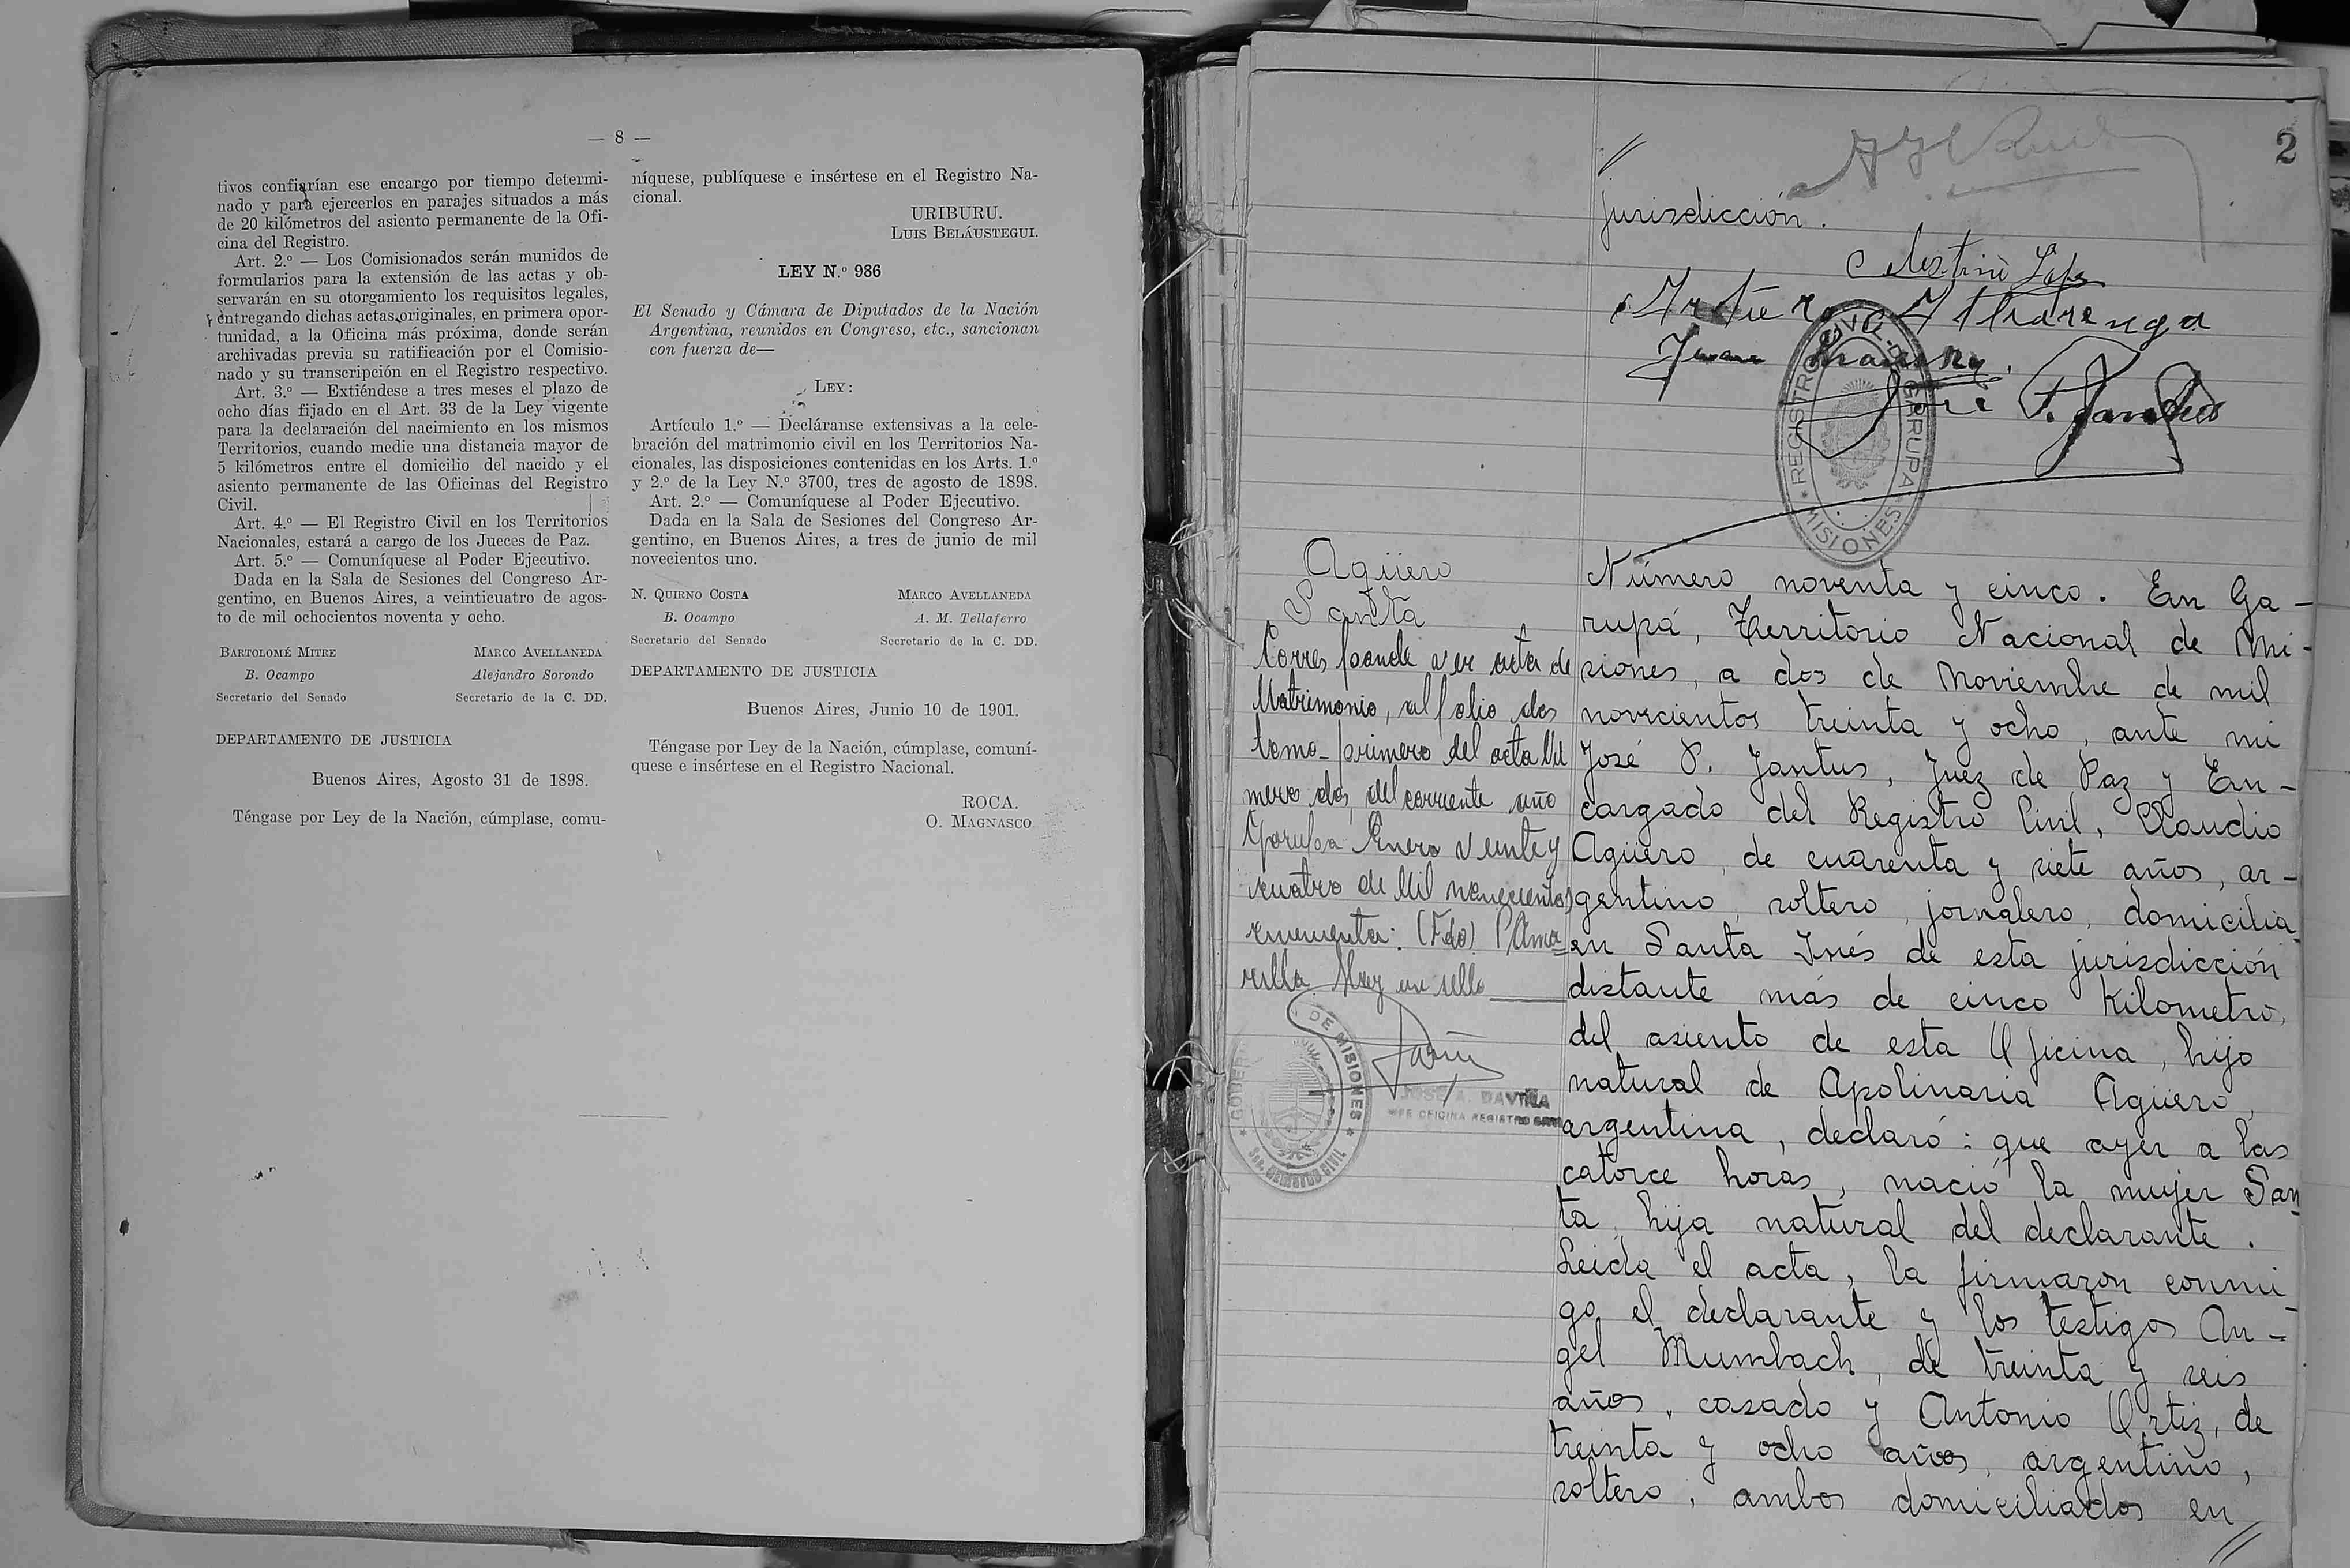 — 8 —
tivos confiarían ese encargo por tiempo determi-
nado y para ejercerlos en parajes situados a más
de 20 kilómetros del asiento permanente de la Ofi-
cina del Registro.
Art. 2.º — Los Comisionados serán munidos de
formularios para la extensión de las actas y ob-
servarán en su otorgamiento los requisitos legales,
entregando dichas actas originales, en primera opor-
tunidad, a la Oficina más próxima, donde serán
archivadas previa su ratificación por el Comisio-
nado y su transcripción en el Registro respectivo.
Art. 3.º — Extiéndese a tres meses el plazo de
ocho días fijado en el Art. 33 de la Ley vigente
para la declaración del nacimiento en los mismos
Territorios, cuando medie una distancia mayor de
5 kilómetros entre el domicilio del nacido y el
asiento permanente de las Oficinas del Registro
Civil.
Art. 4.º — El Registro Civil en los Territorios
Nacionales, estará a cargo de los Jueces de Paz.
Art. 5.º — Comuníquese al Poder Ejecutivo.
Dada en la Sala de Sesiones del Congreso Ar-
gentino, en Buenos Aires, a veinticuatro de agos-
to de mil ochocientos noventa y ocho.
BARTOLOMÉ MITRE MARCO AVELLANEDA
B. Ocampo Alejandro Sorondo
Secretario del Senado Secretario de la C. DD.
DEPARTAMENTO DE JUSTICIA
Buenos Aires, Agosto 31 de 1898.
Téngase por Ley de la Nación, cúmplase, comu-
níquese, publíquese e insértese en el Registro Na-
cional.
URIBURU.
LUIS BELÁUSTEGUI.
LEY N.º 986
El Senado y Cámara de Diputados de la Nación
Argentina, reunidos en Congreso, etc., sancionan
con fuerza de—
LEY:
Artículo 1.º — Decláranse extensivas a la cele-
bración del matrimonio civil en los Territorios Na-
cionales, las disposiciones contenidas en los Arts. 1.º
y 2.º de la Ley N.º 3700, tres de agosto de 1898.
Art. 2.º — Comuníquese al Poder Ejecutivo.
Dada en la Sala de Sesiones del Congreso Ar-
gentino, en Buenos Aires, a tres de junio de mil
novecientos uno.
N. QUIRNO COSTA MARCO AVELLANEDA
B. Ocampo A. M. Tellaferro
Secretario del Senado Secretario de la C. DD.
DEPARTAMENTO DE JUSTICIA
Buenos Aires, Junio 10 de 1901.
Téngase por Ley de la Nación, cúmplase, comuní-
quese e insértese en el Registro Nacional.
ROCA.
O. MAGNASCO
2
jurisdicción.
REGISTRO CIVIL - GARRUPA
MISIONES
Agüero
Santa
Corresponde ver acta de
Matrimonio, al folio dos
tomo primero del acta Nú
mero dos, del corriente año
Garupa Enero veinte y
cuatro de Mil novecientos
cincuenta: (Fdo)
Hay un sello
DE MISIONES
JOSÉ A. DAVIÑA
JEFE OFICINA REGISTRO CIVIL
Número noventa y cinco. En Ga-
rupá, Territorio Nacional de Mi-
siones, a dos de Noviembre de mil
novecientos treinta y ocho, ante mi
José P. Jantus, Juez de Paz y En-
cargado del Registro Civil, Claudio
Agüero, de cuarenta y siete años, ar-
gentino, soltero, jornalero, domicilia
en Santa Inés de esta jurisdicción
distante más de cinco Kilometro
del asiento de esta Oficina, hijo
natural de Apolinaria Agüero,
argentina, declaró: que ayer a las
catorce horas, nació la mujer San
ta, hija natural del declarante.
Leida el acta, la firmaron conmi-
go el declarante y los testigos An-
gel Mumbach, de treinta y seis
años, casado y Antonio Ortiz, de
treinta y ocho años, argentino,
soltero, ambos domiciliados en